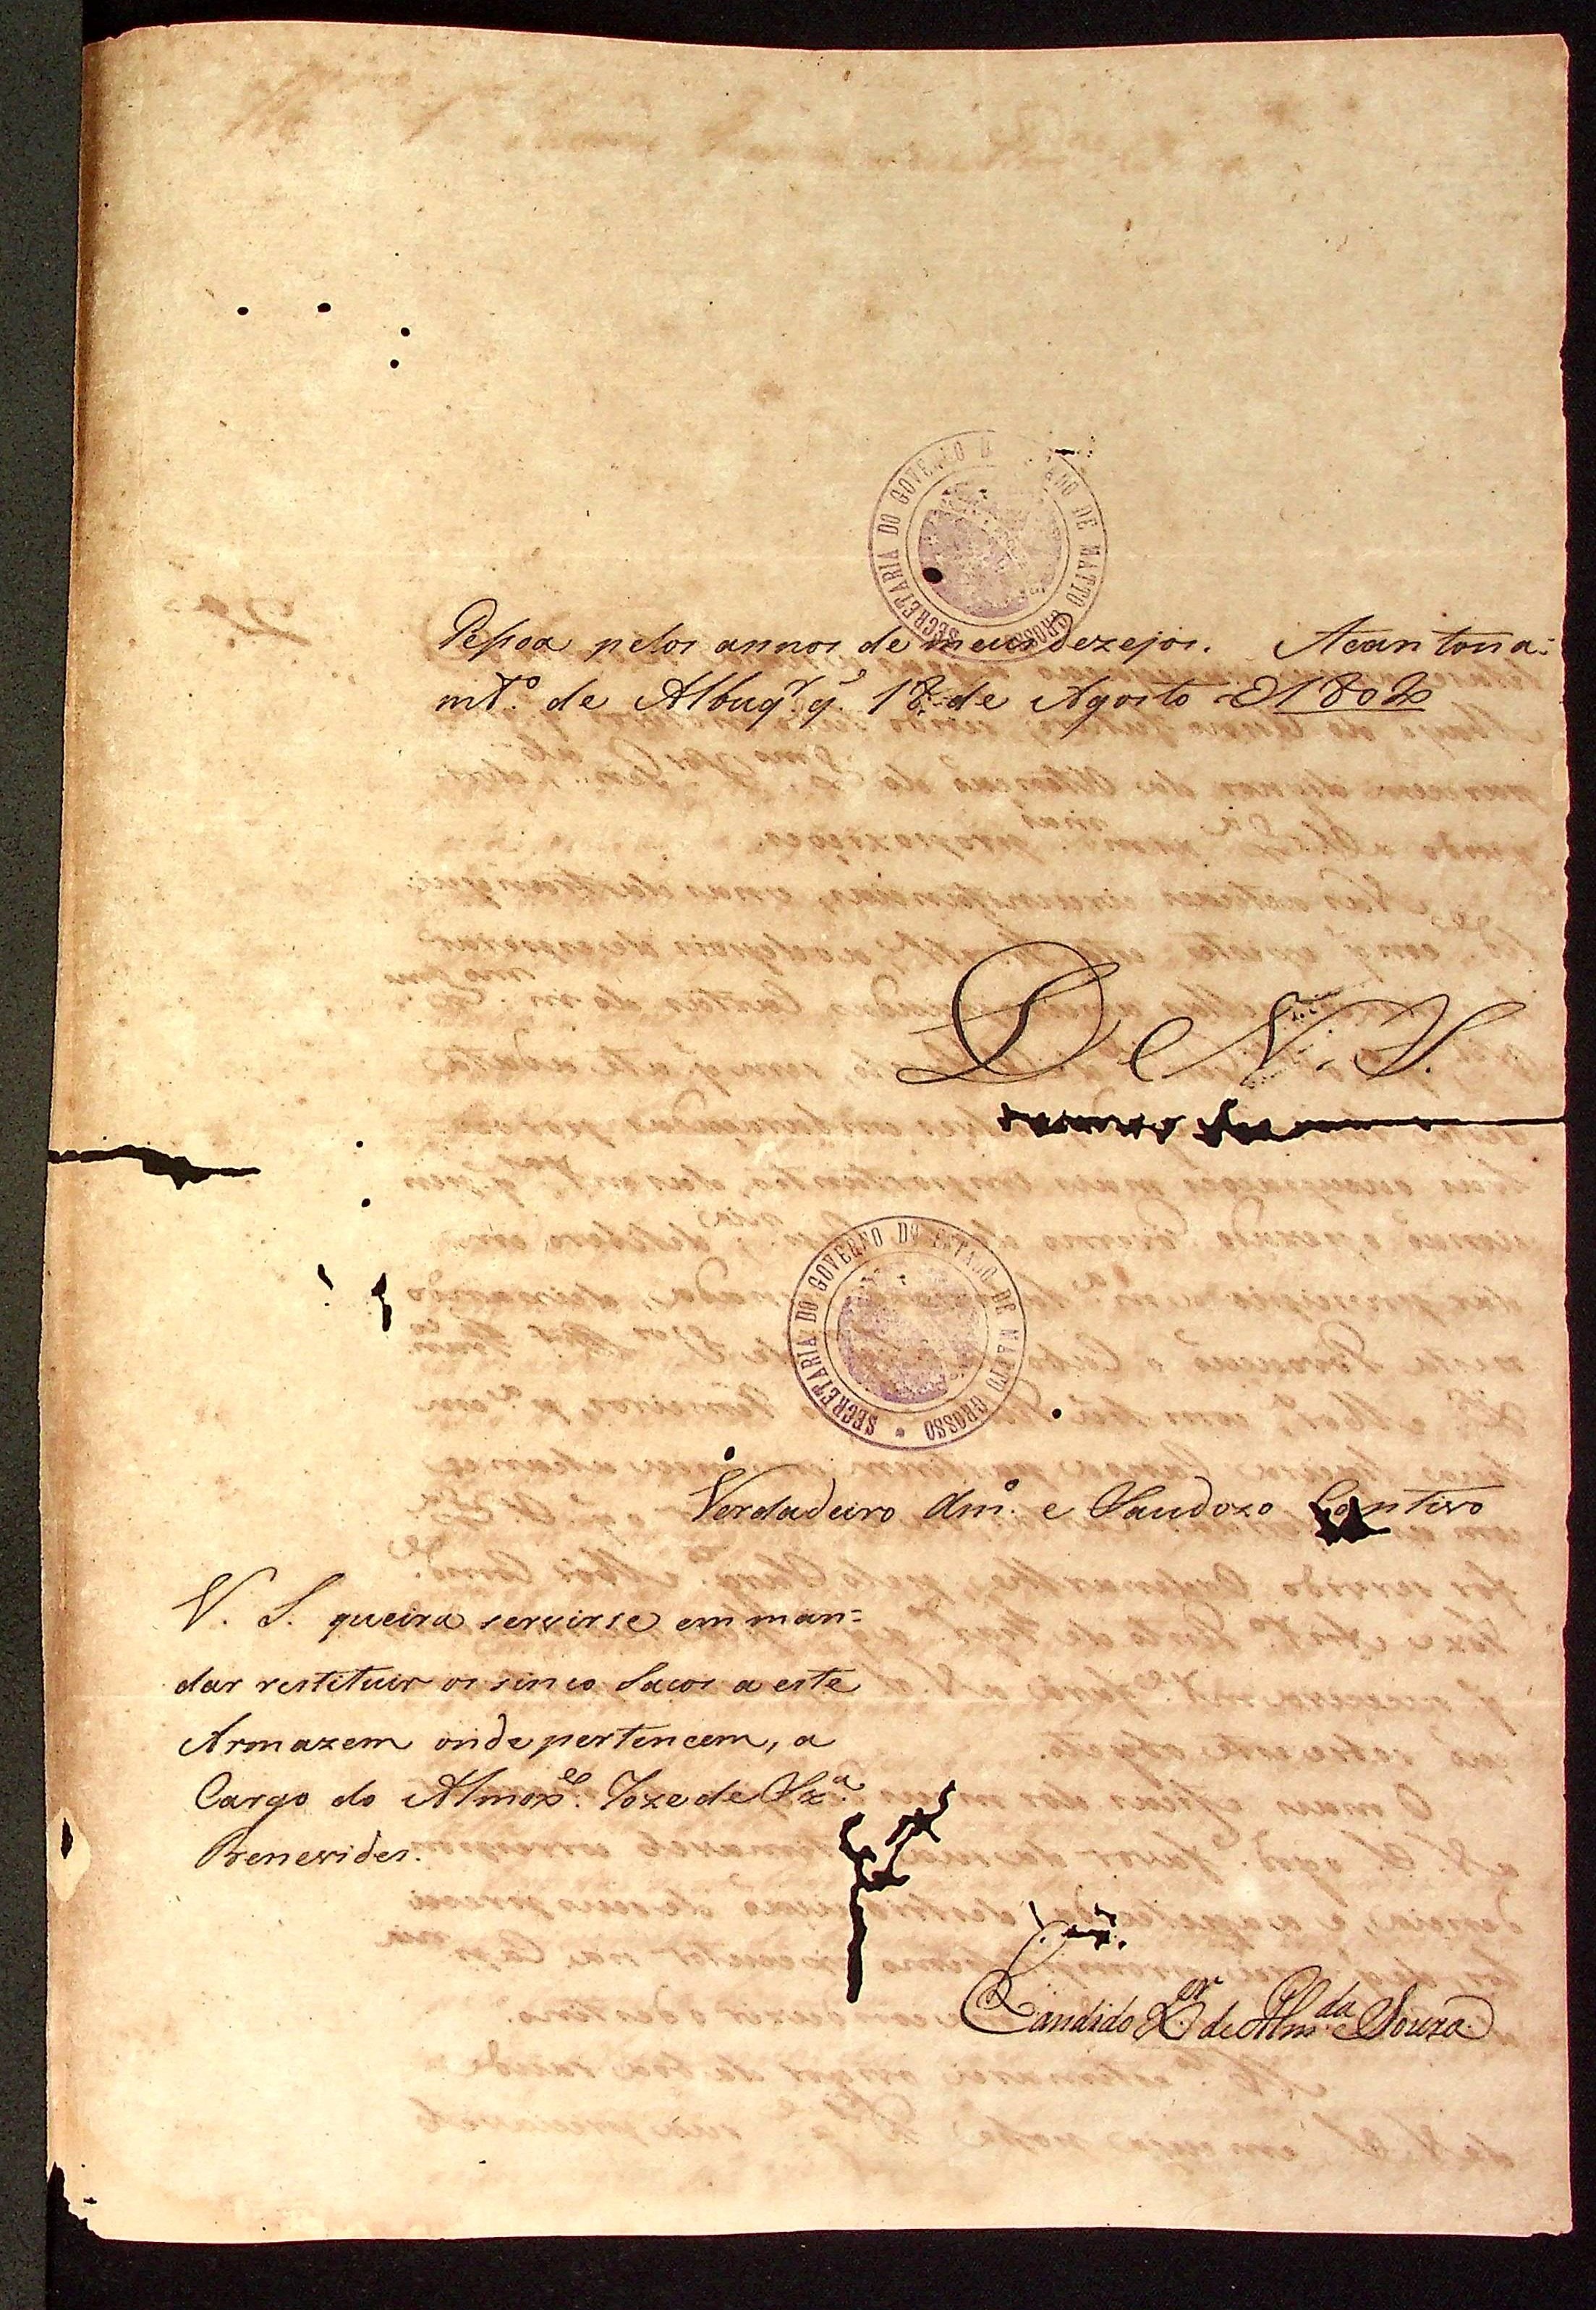 SECRETARIA DO GOVERNO D DO DE MATTO GROSSO
Pessoa pelos annos de meus dezejos. Acantona=
mt.º de Albuqr.q̃ 18 de Agosto D 1802
De V. S.
SECRETARIA DO GOVERNO DO ESTADO DE MATTO GROSSO *
Verdadeiro Am.º e Saudozo Cantivo
V. S. queira servirse em man=
dar restituir os sinco Sacos a este
Armazem onde pertencem, a
Cargo do Almox.e Joze de Sz.a
Benevides.
Candido X.er de Alm.da e Souza